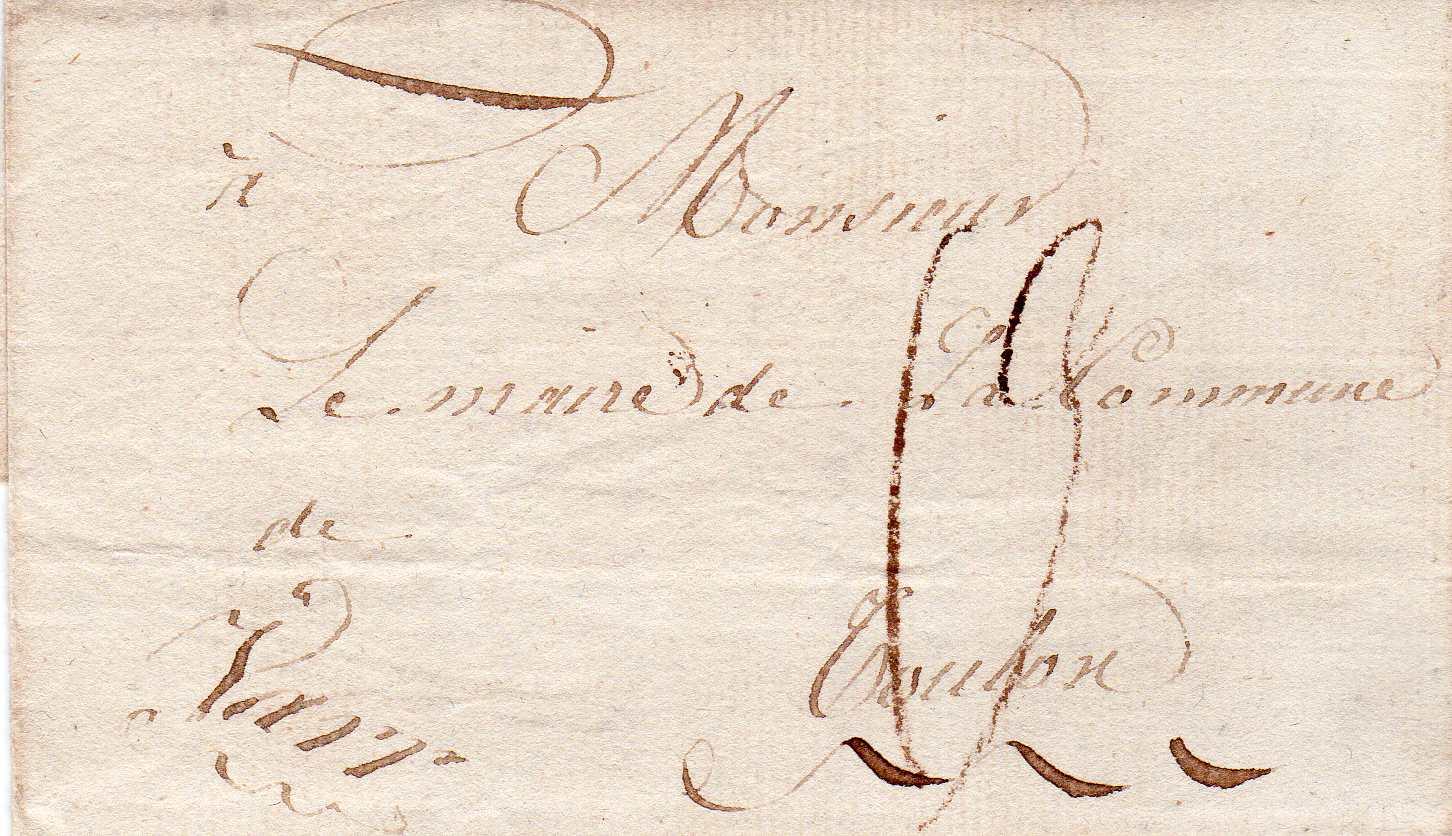 à Monsieur
Le maire de La Commune
de Toulon